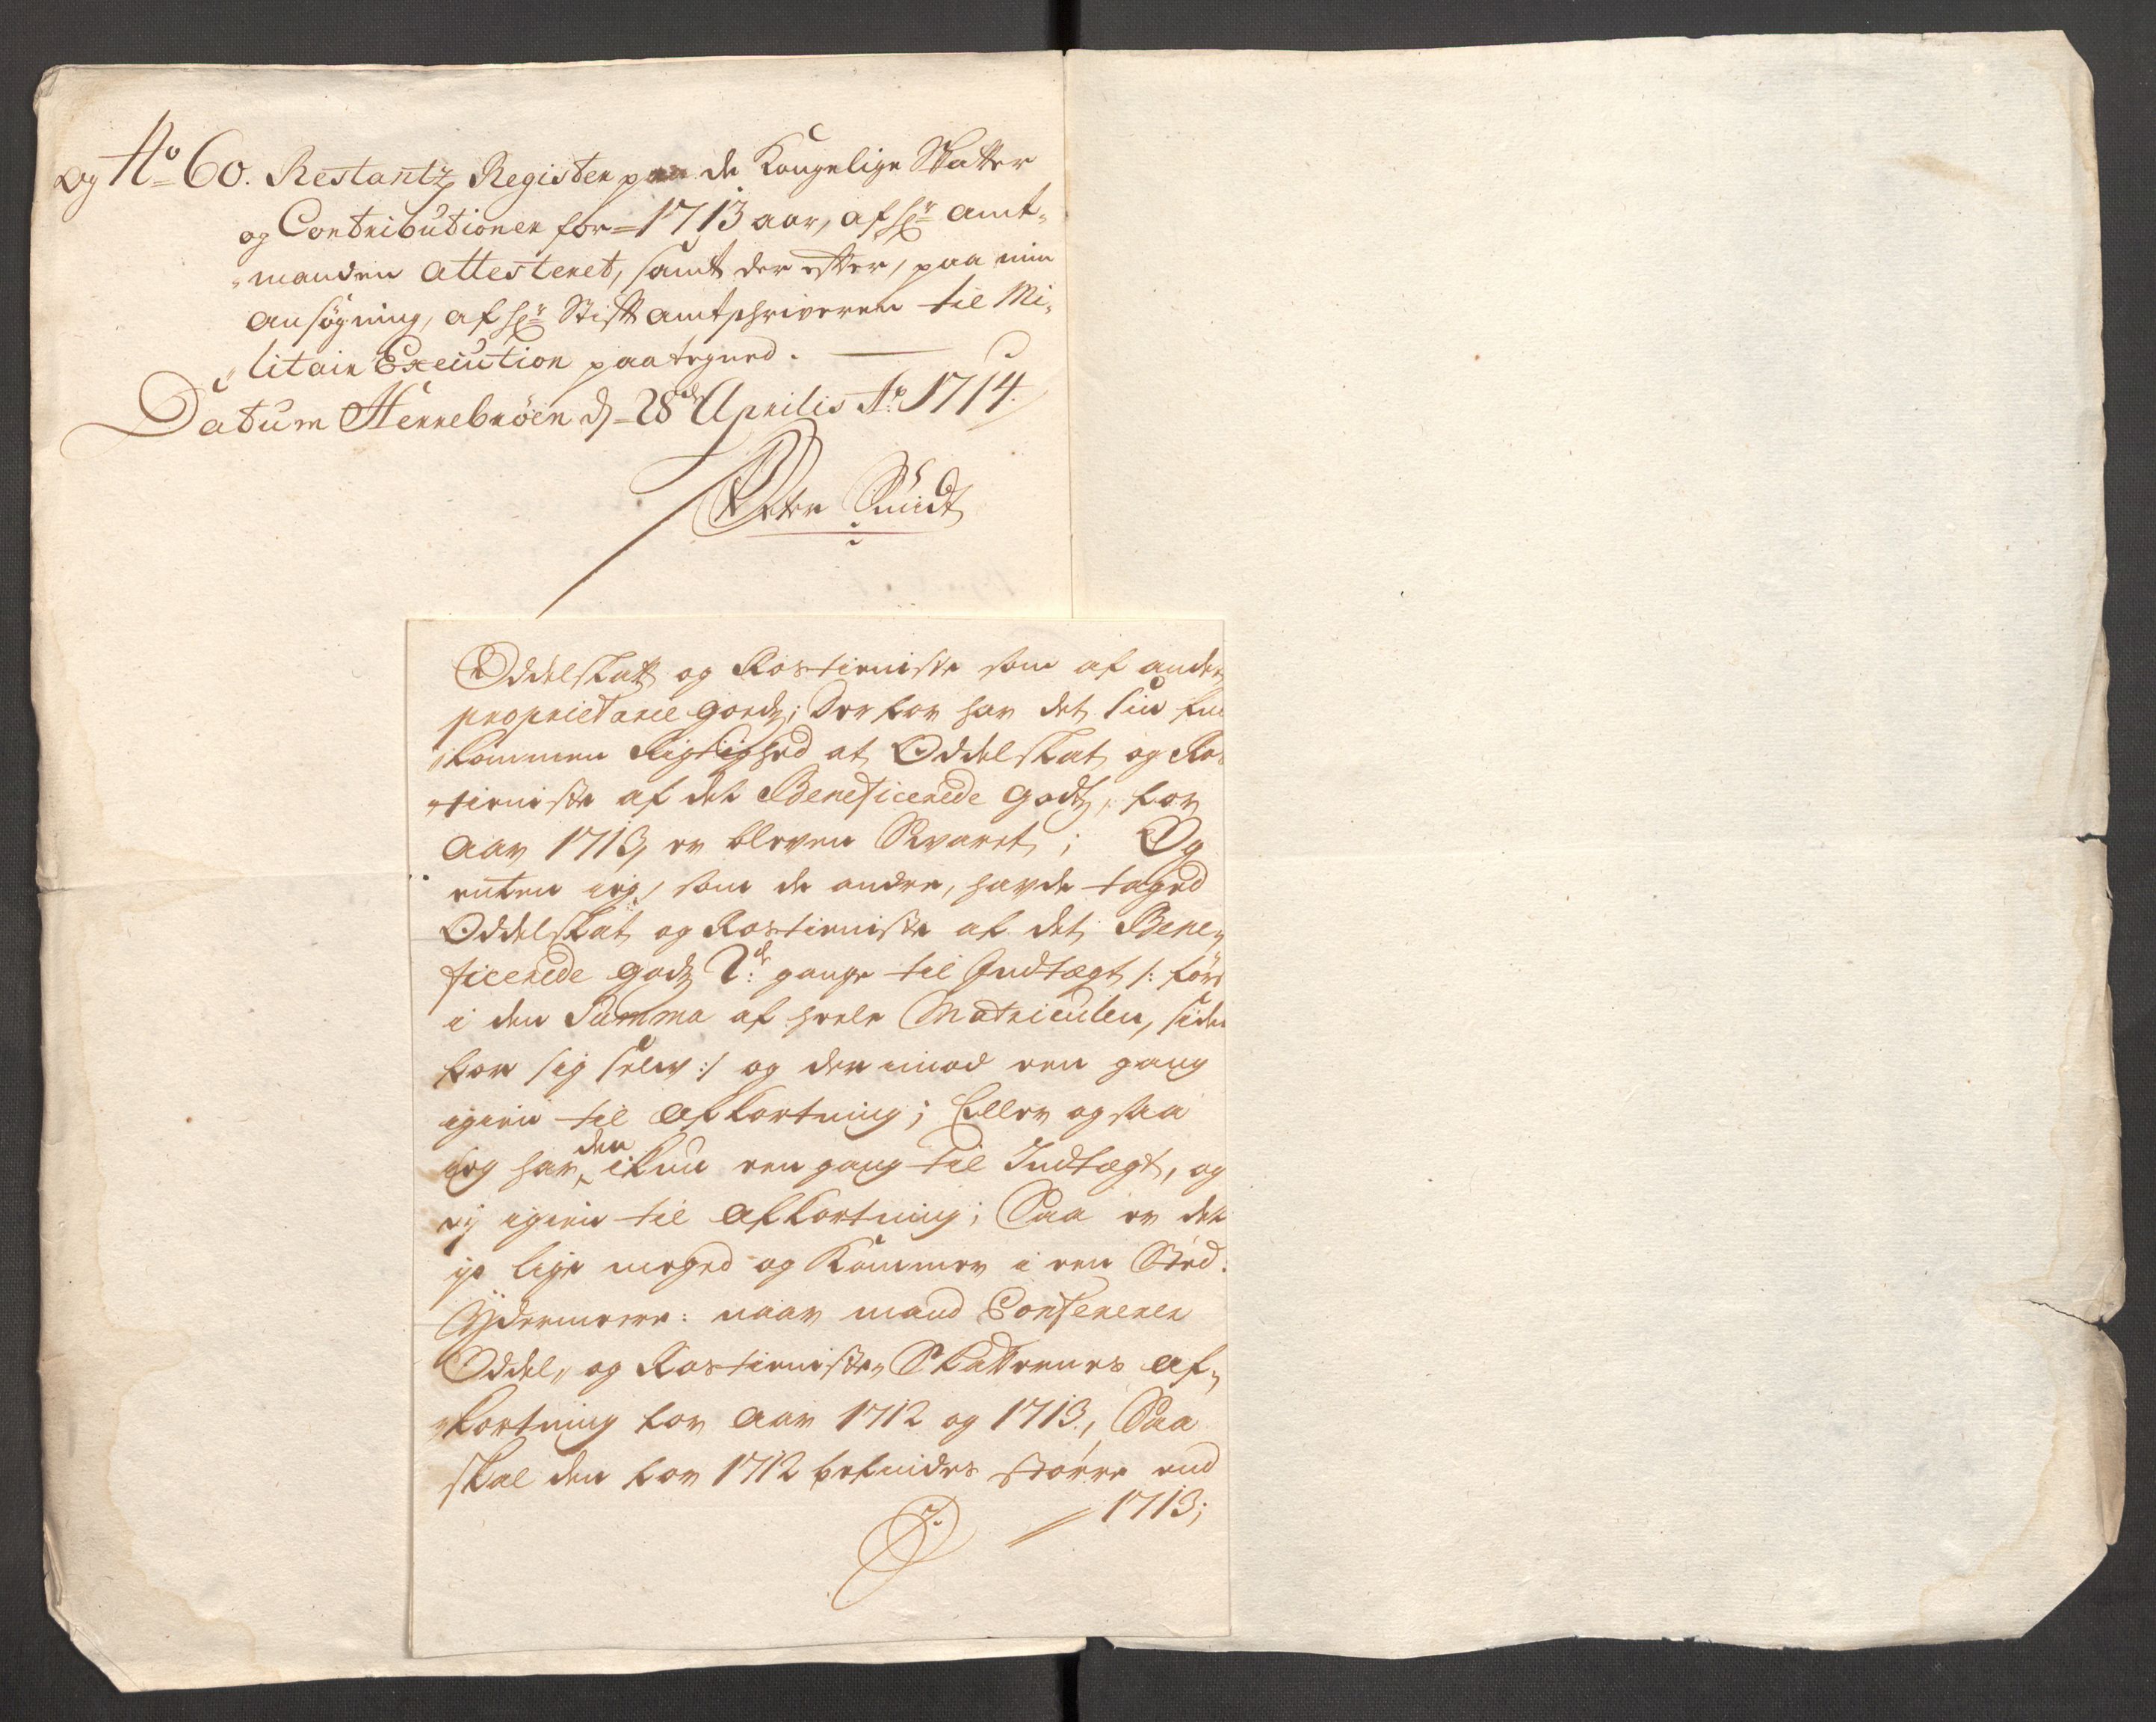 og No 60. Restantz Register paa de Kongelige Skatter
og Contributioner for 1713 aar, af hr: Amt-
manden attesteret, samt der efter, paa min
ansögning, af hr: Stiftamtschriveren til Mi-
litair Execution paategned.
Datum Herrebröen d. 28de Aprilis Ao 1714.
Peter Smidt
Oddelskatt og Rostieniste som af andet
proprietarie godtz; Der for har det sin ful
kommen Rigtighed at Oddelskat og Ros
tieniste af det Beneficerede godtz, for
aar 1713, er bleven Svaret; Og
enten ieg, som de andre, hafde taged
Oddelskat og Rostieniste af det Bene-
ficerede godtz 2de gange til Indtægt /: först
i den Summa af heele Matriculen, siden
for sig selv :/ og der imod een gang
igien til afkortning; Eller og saa
ieg har den ikun een gang til Indtægt, og
ej igien til afkortning; Saa er det
jo lige meged og Kommer i een Sted.
Ydermeere: naar mand Confererer
Oddel- og Rostieniste Skatternes af-
kortning for aar 1712 og 1713, Saa
skal den for 1712 befindes större end
1713;